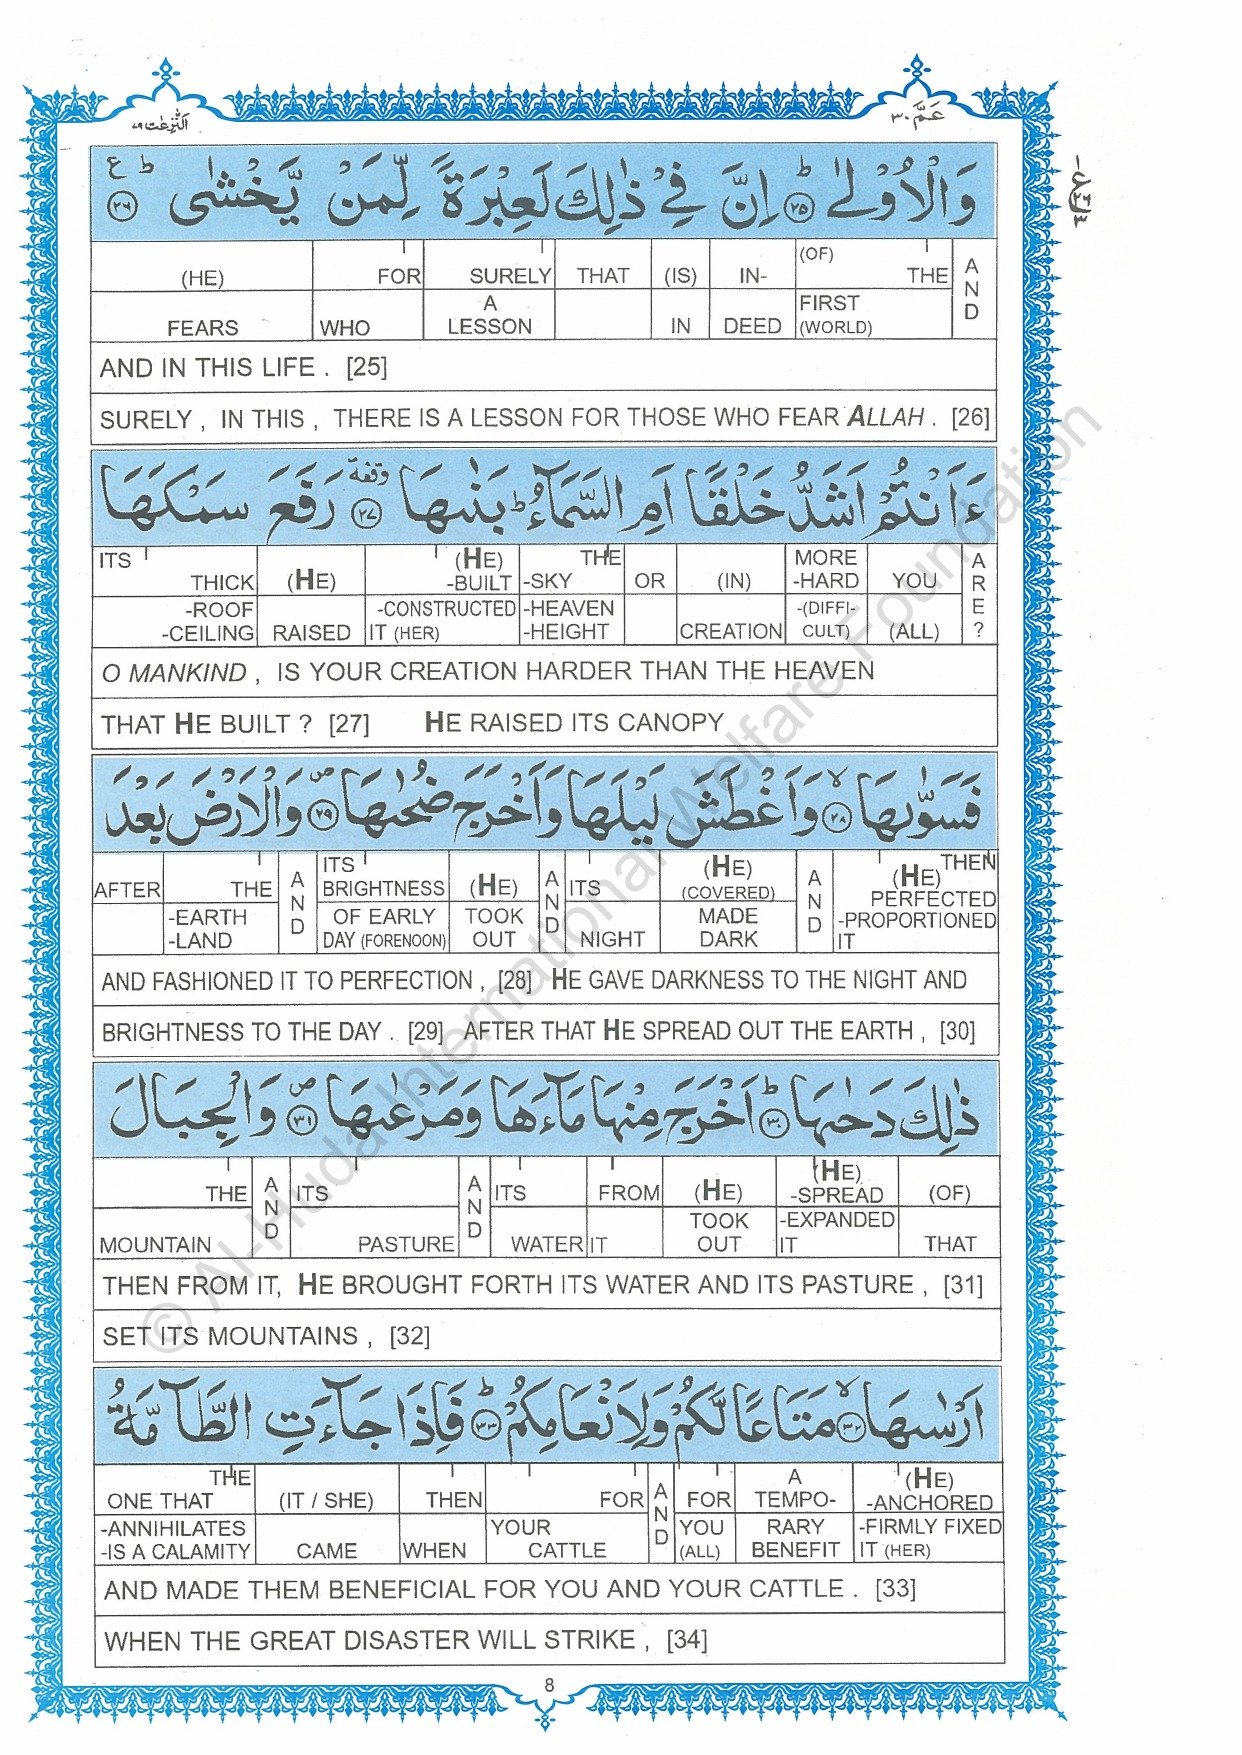 عَمَّ ٣٠
اَلنّٰزِعٰت ٧٩
وَالْاُوْلٰى ؕ ﴿۲۵﴾ اِنَّ فِيْ ذٰلِكَ لَعِبْرَةً لِّمَنْ يَّخْشٰى ؕ ع ﴿۲۶﴾
(HE) FOR SURELY THAT (IS) IN- (OF) THE AND
FEARS WHO A LESSON IN DEED FIRST (WORLD)
AND IN THIS LIFE . [25]
SURELY , IN THIS , THERE IS A LESSON FOR THOSE WHO FEAR ALLAH . [26]
ءَاَنْتُمْ اَشَدُّ خَلْقًا اَمِ السَّمَآءُ ؕ بَنٰىهَا ﴿۲۷﴾ وقفة رَفَعَ سَمْكَهَا
ITS THICK (HE) (HE) -BUILT THE -SKY OR (IN) MORE -HARD YOU ARE?
-ROOF -CEILING RAISED -CONSTRUCTED IT (HER) -HEAVEN -HEIGHT CREATION -(DIFFI-CULT) (ALL)
O MANKIND , IS YOUR CREATION HARDER THAN THE HEAVEN
THAT HE BUILT ? [27] HE RAISED ITS CANOPY
فَسَوّٰىهَا ۙ ﴿۲۸﴾ وَاَغْطَشَ لَيْلَهَا وَاَخْرَجَ ضُحٰىهَا ۪ ﴿۲۹﴾ وَالْاَرْضَ بَعْدَ
AFTER THE AND ITS BRIGHTNESS (HE) AND ITS (HE) (COVERED) AND (HE) THEN PERFECTED
-EARTH -LAND OF EARLY DAY (FORENOON) TOOK OUT NIGHT MADE DARK -PROPORTIONED IT
AND FASHIONED IT TO PERFECTION , [28] HE GAVE DARKNESS TO THE NIGHT AND
BRIGHTNESS TO THE DAY . [29] AFTER THAT HE SPREAD OUT THE EARTH , [30]
ذٰلِكَ دَحٰىهَا ؕ ﴿۳۰﴾ اَخْرَجَ مِنْهَا مَآءَهَا وَمَرْعٰىهَا ۪ ﴿۳۱﴾ وَالْجِبَالَ
THE AND ITS AND ITS FROM (HE) (HE) -SPREAD (OF)
MOUNTAIN PASTURE WATER IT TOOK OUT -EXPANDED IT THAT
THEN FROM IT, HE BROUGHT FORTH ITS WATER AND ITS PASTURE , [31]
SET ITS MOUNTAINS , [32]
اَرْسٰىهَا ۙ ﴿۳۲﴾ مَتَاعًا لَّكُمْ وَلِاَنْعَامِكُمْ ؕ ﴿۳۳﴾ فَاِذَا جَآءَتِ الطَّآمَّةُ
THE ONE THAT (IT / SHE) THEN FOR AND FOR A TEMPO- (HE) -ANCHORED
-ANNIHILATES -IS A CALAMITY CAME WHEN YOUR CATTLE YOU (ALL) RARY BENEFIT -FIRMLY FIXED IT (HER)
AND MADE THEM BENEFICIAL FOR YOU AND YOUR CATTLE . [33]
WHEN THE GREAT DISASTER WILL STRIKE , [34]
8
© Al-Huda International Welfare Foundation